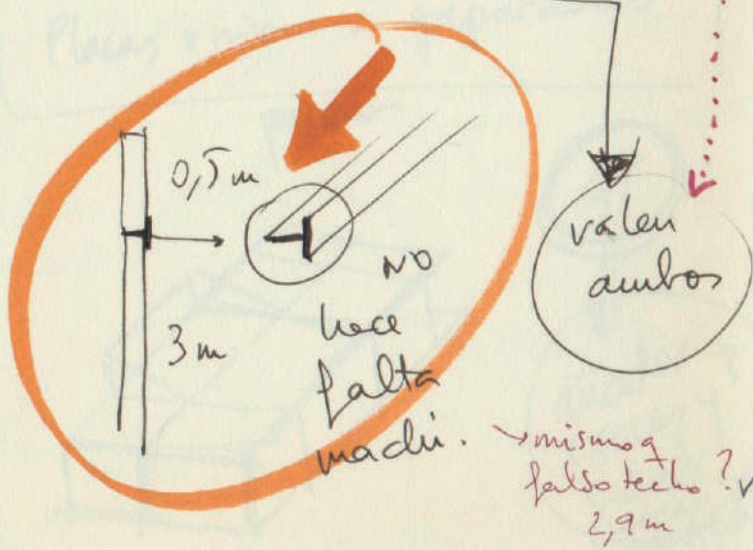 Placas
0,5 m
3 m
NO
hace
falta
machi.
valen
ambos
→ mismo q
falso techo? ✓
2,9 m